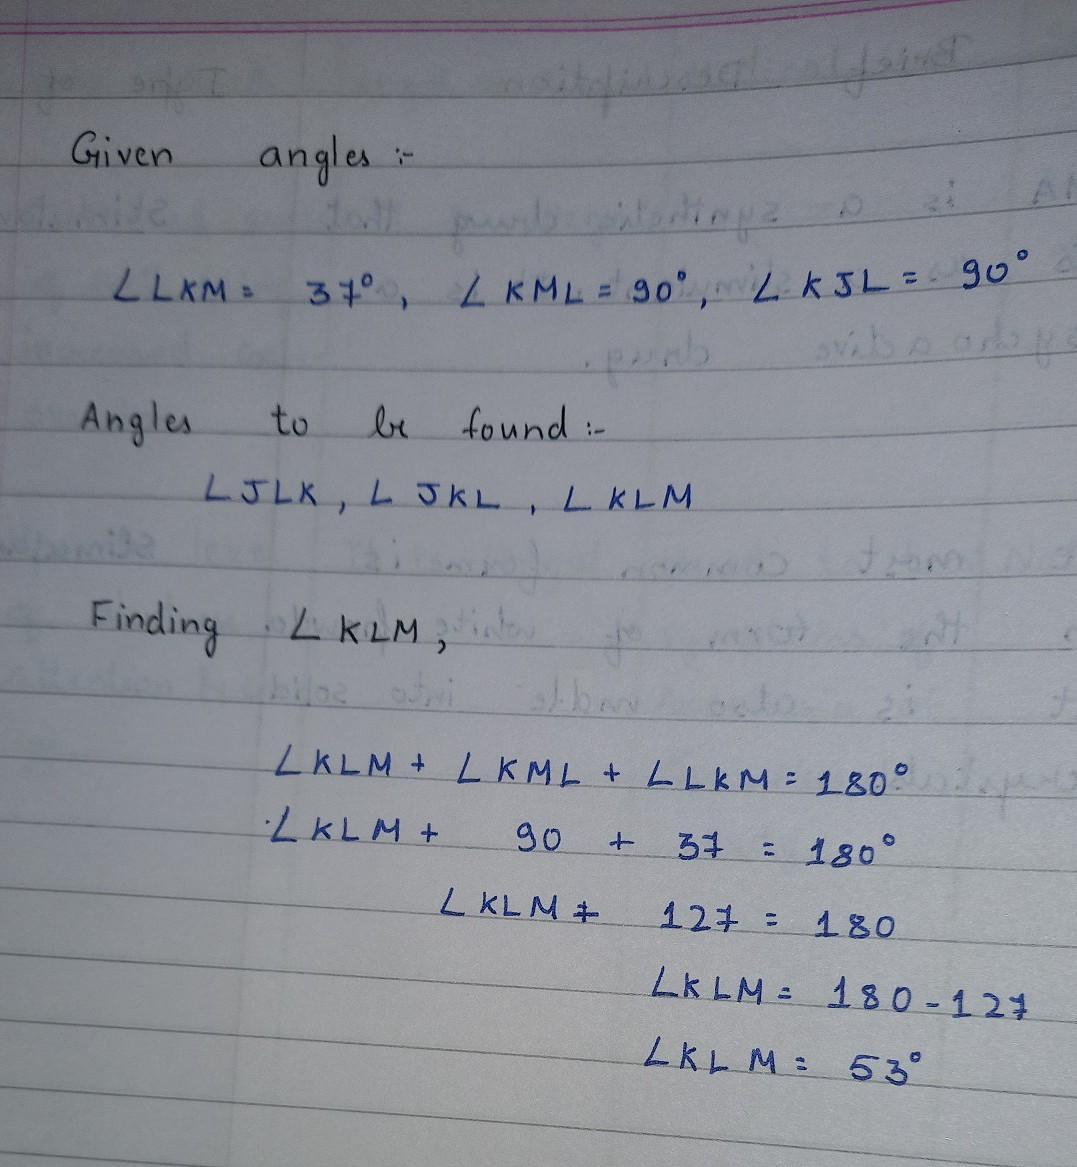 Given angles :-
∠LKM = 37°, ∠KML = 90°, ∠KJL = 90°
Angles to be found :-
∠JLK, ∠JKL, ∠KLM
Finding ∠KLM,
∠KLM + ∠KML + ∠LKM = 180°
∠KLM + 90 + 37 = 180°
∠KLM + 127 = 180
∠KLM = 180 - 127
∠KLM = 53°